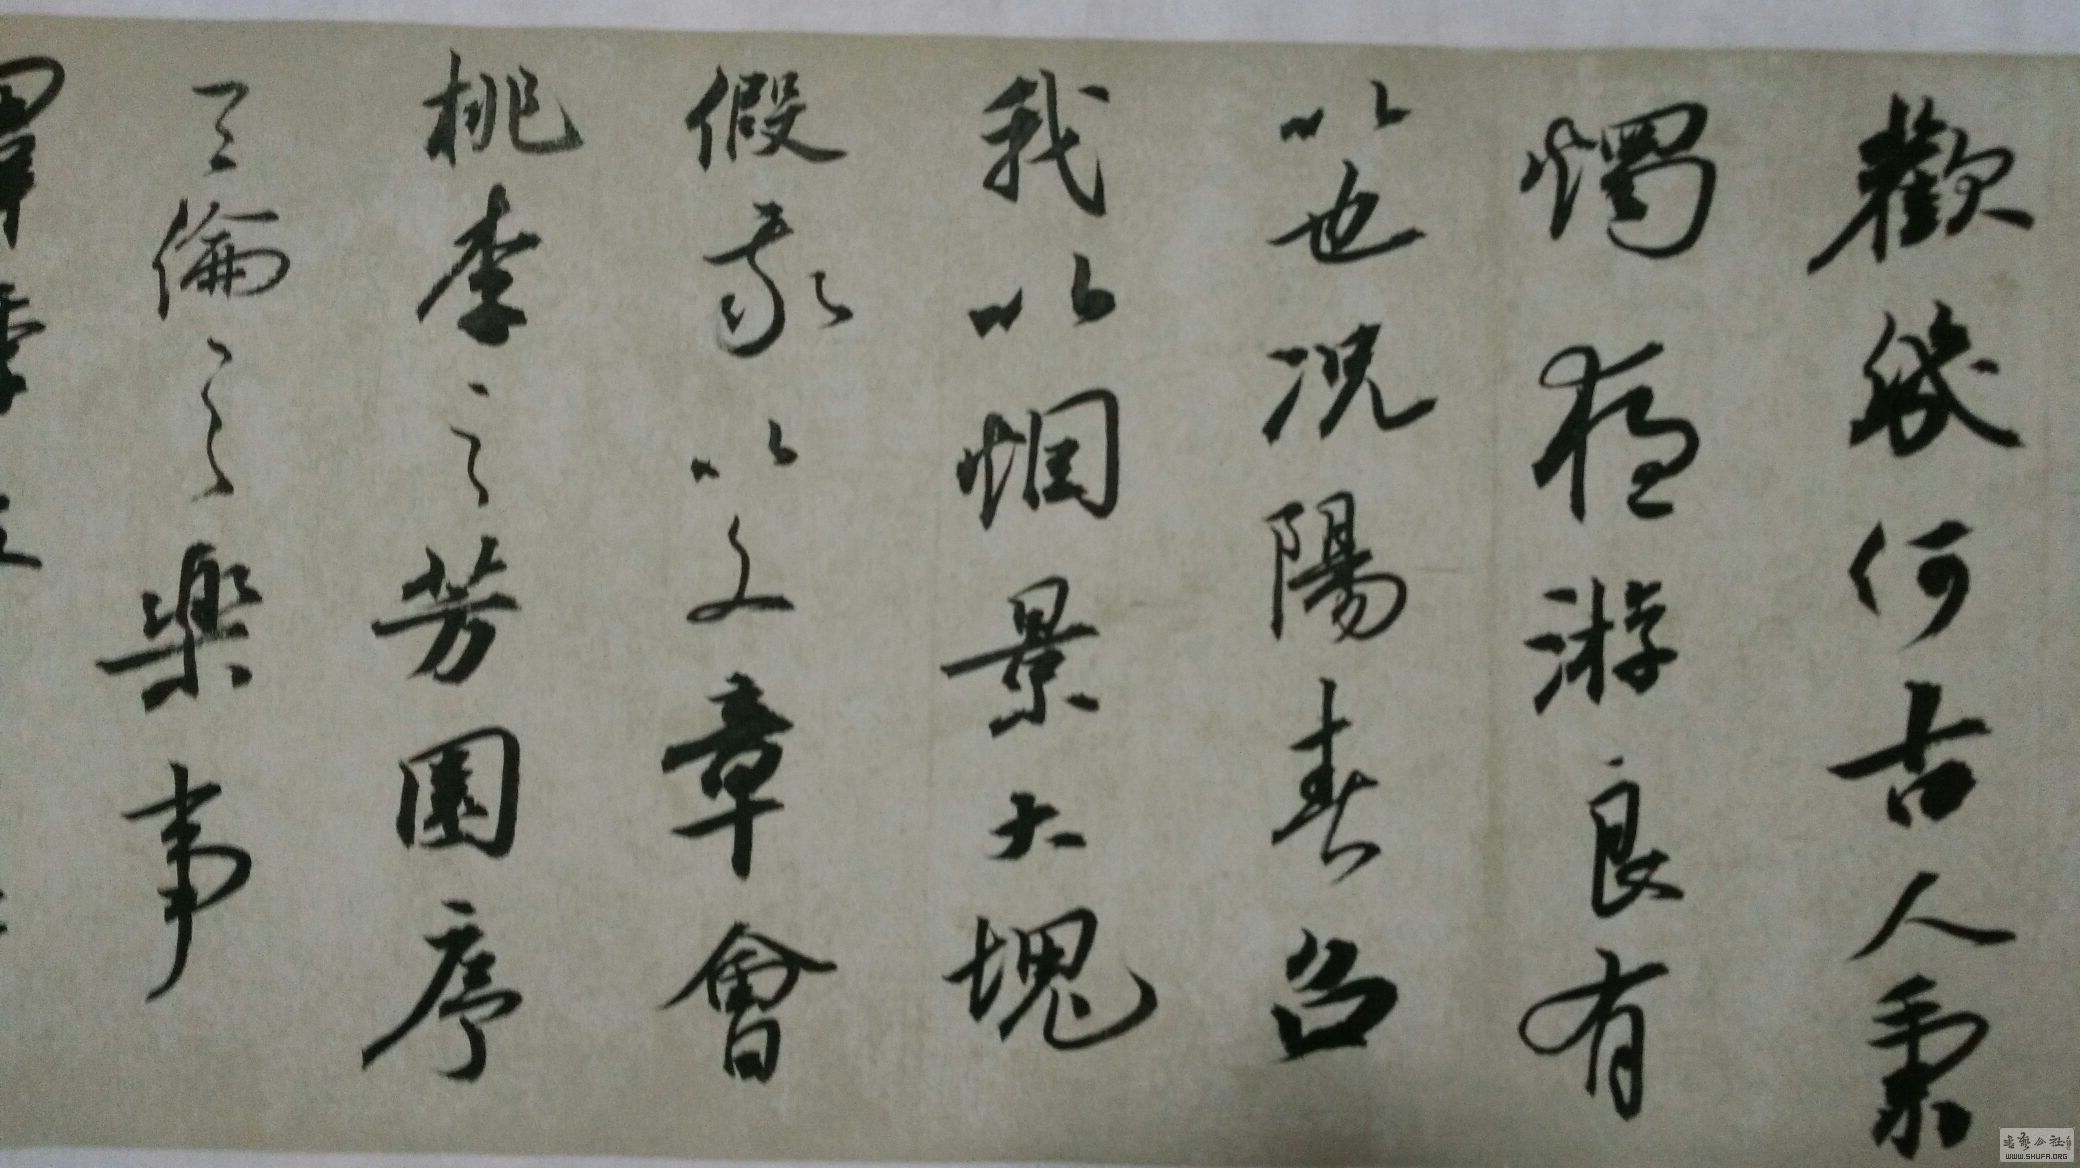 歡幾何古人秉
燭游良有
以也况陽春召
我以烟景大塊
假我以文章會
桃李之芳園序
天倫之樂事
羣季
WWW.SHUFA.ORG